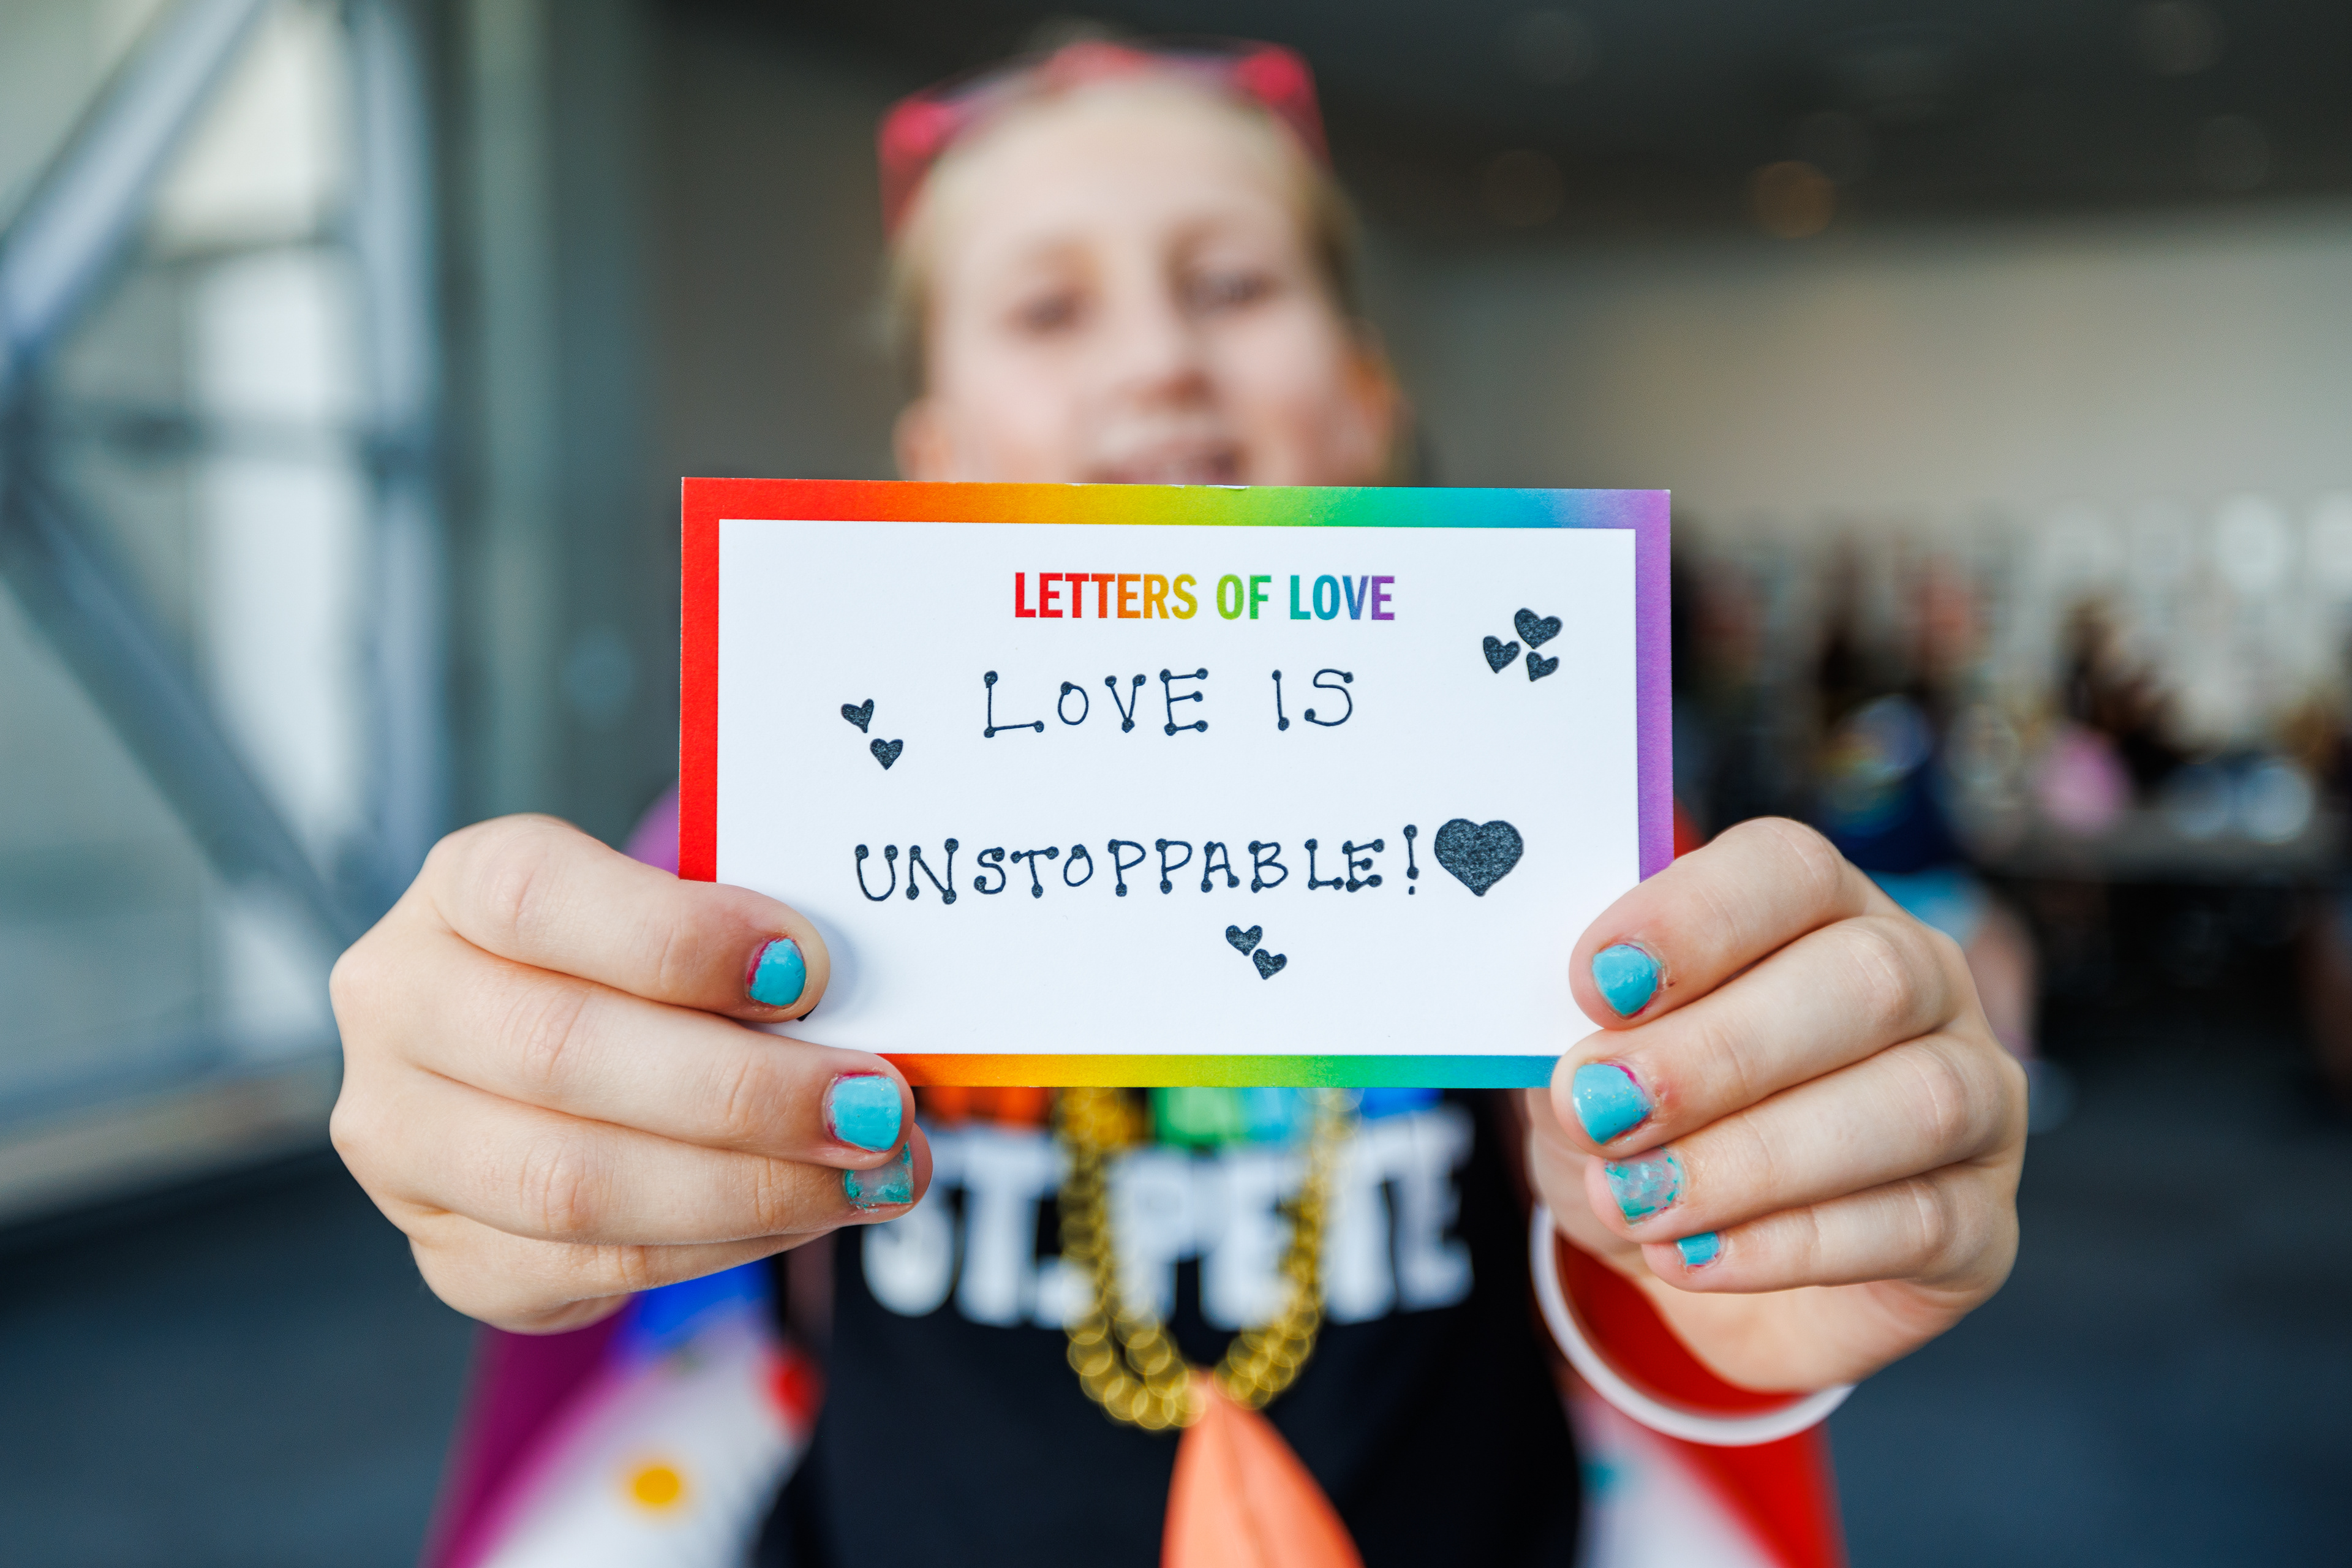 LETTERS OF LOVE
LOVE IS
UNSTOPPABLE!
ST. PETE